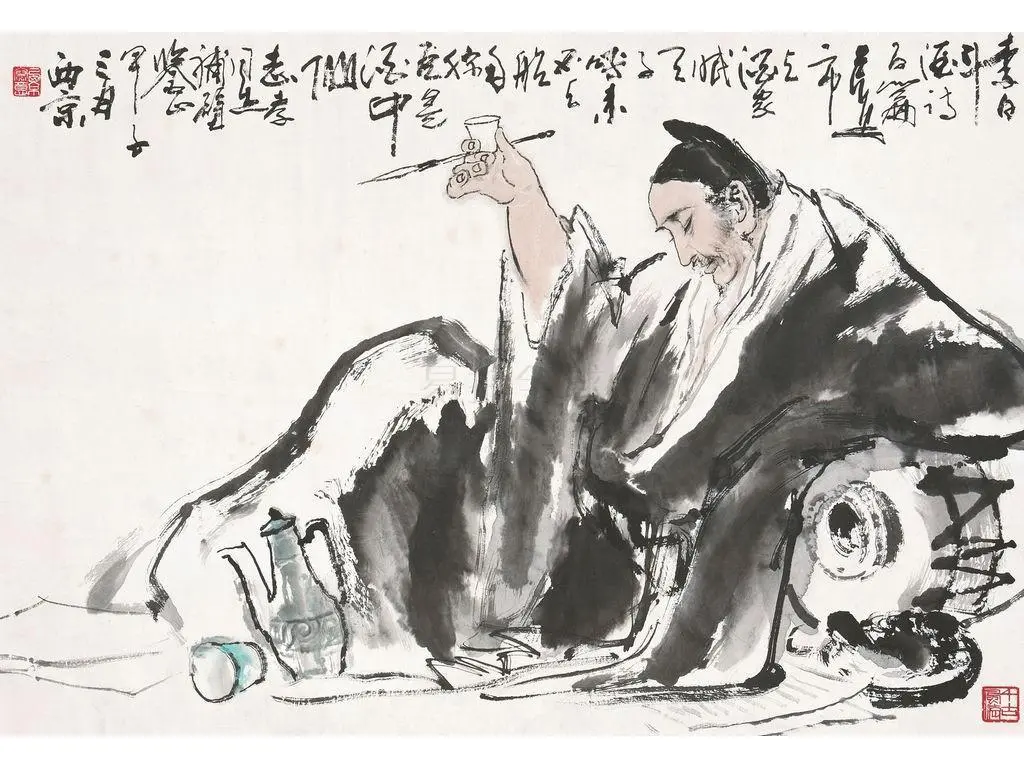 李白
斗
酒诗
百篇
长安
市
上
酒家
眠
天
子
呼来
不上
船
自
称
臣是
酒中
仙
志孝
同志
補壁
鉴正
甲子
三月
西京